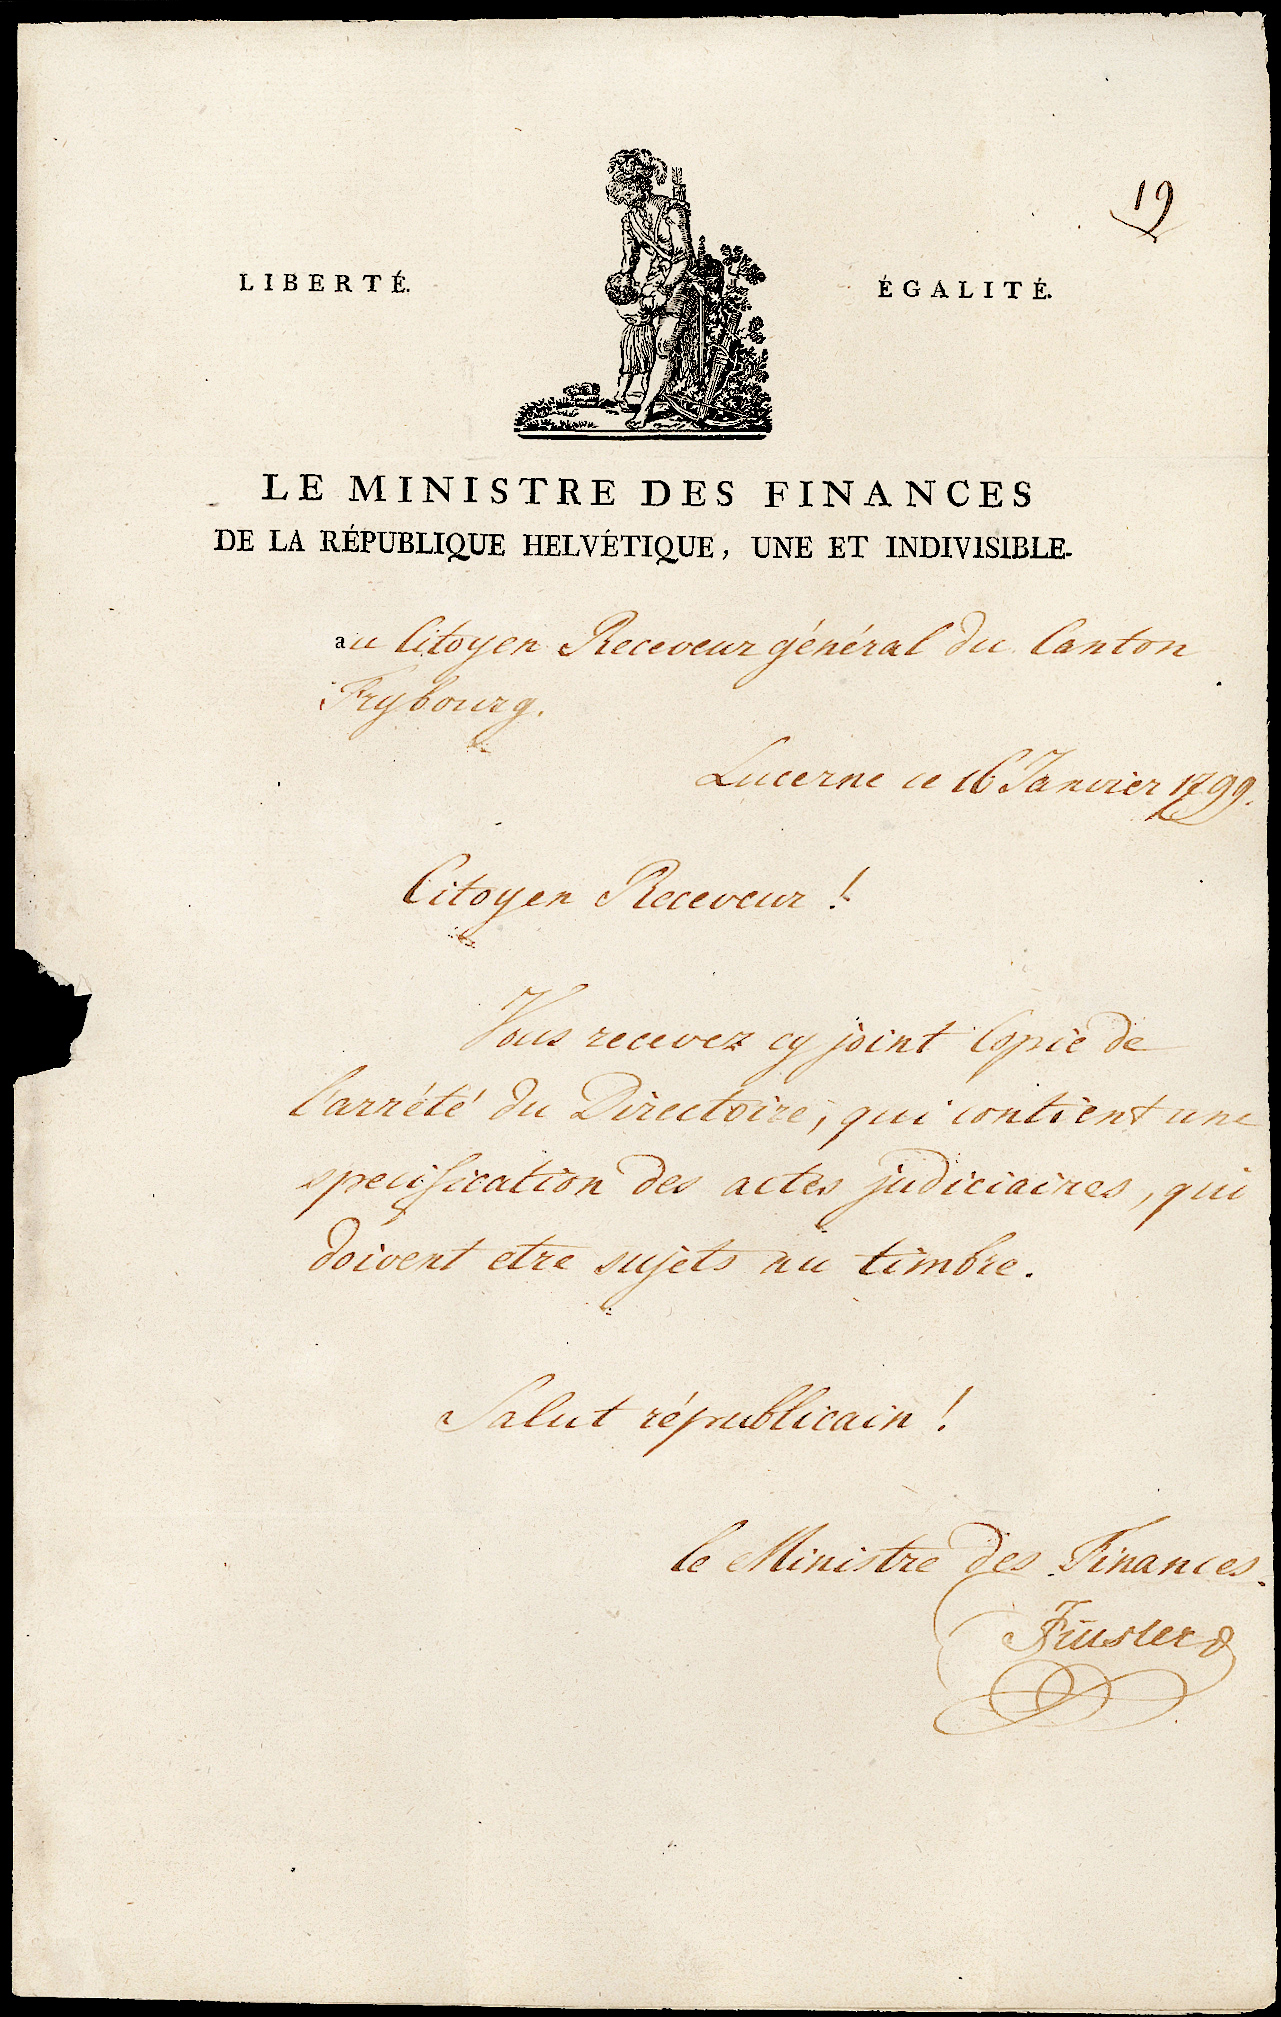 19
LIBERTÉ. ÉGALITÉ.
LE MINISTRE DES FINANCES
DE LA RÉPUBLIQUE HELVÉTIQUE, UNE ET INDIVISIBLE.
au Citoyen Receveur général du Canton
Frybourg.
Lucerne ce 16 Janvier 1799.
Citoyen Receveur !
Vous recevez cy joint Copie de
l'arrété du Directoire, qui contient une
specification des actes judiciaires, qui
doivent etre sujets au timbre.
Salut républicain !
le Ministre des Finances.